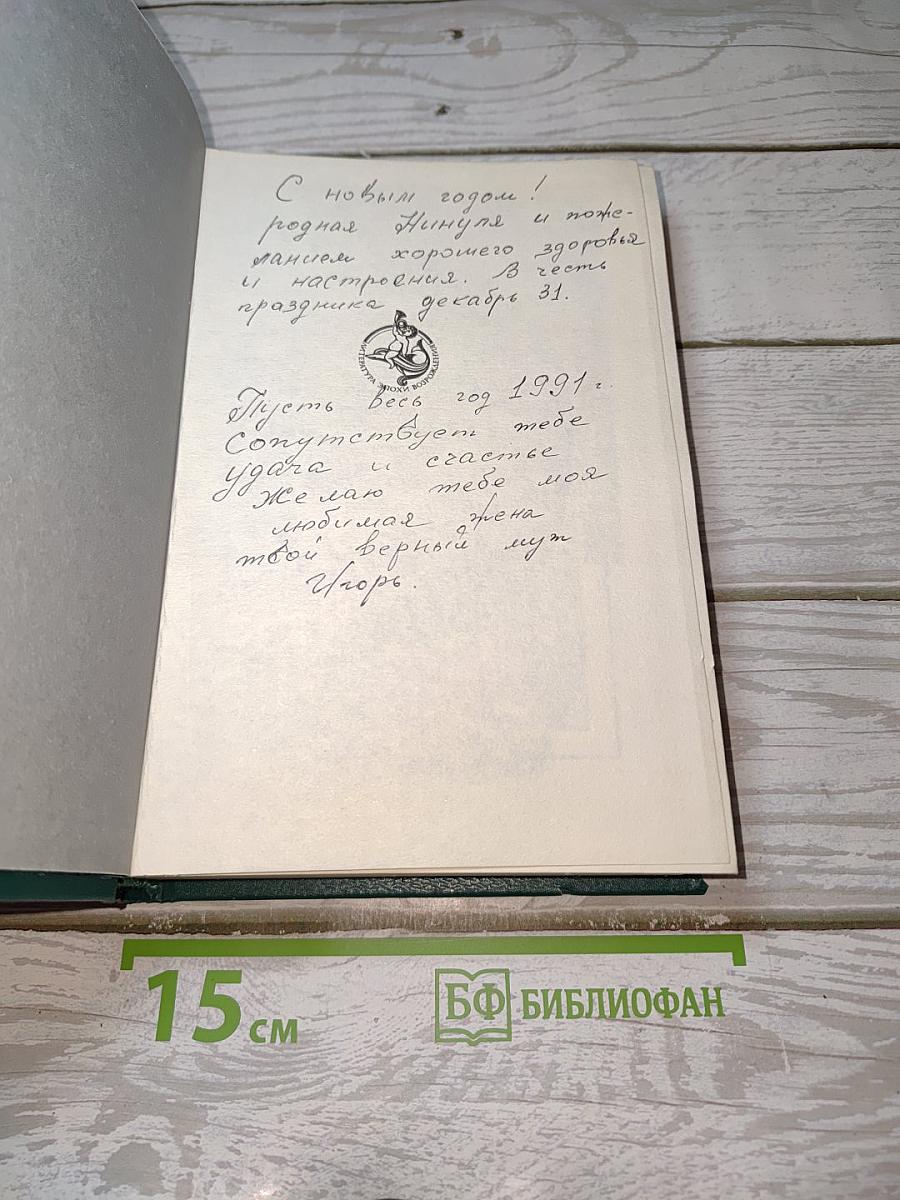 С новым годом!
родная Нинуля и поже-
ланием хорошего здоровья
и настроения. В честь
праздника декабрь 31.
ЛИТЕРАТУРА ЭПОХИ ВОЗРОЖДЕНИЯ
Пусть весь год 1991 г.
Сопутствует тебе
удача и счастье
Желаю тебе моя
любимая жена
твой верный муж
Игорь.
15 см
БФ БИБЛИОФАН